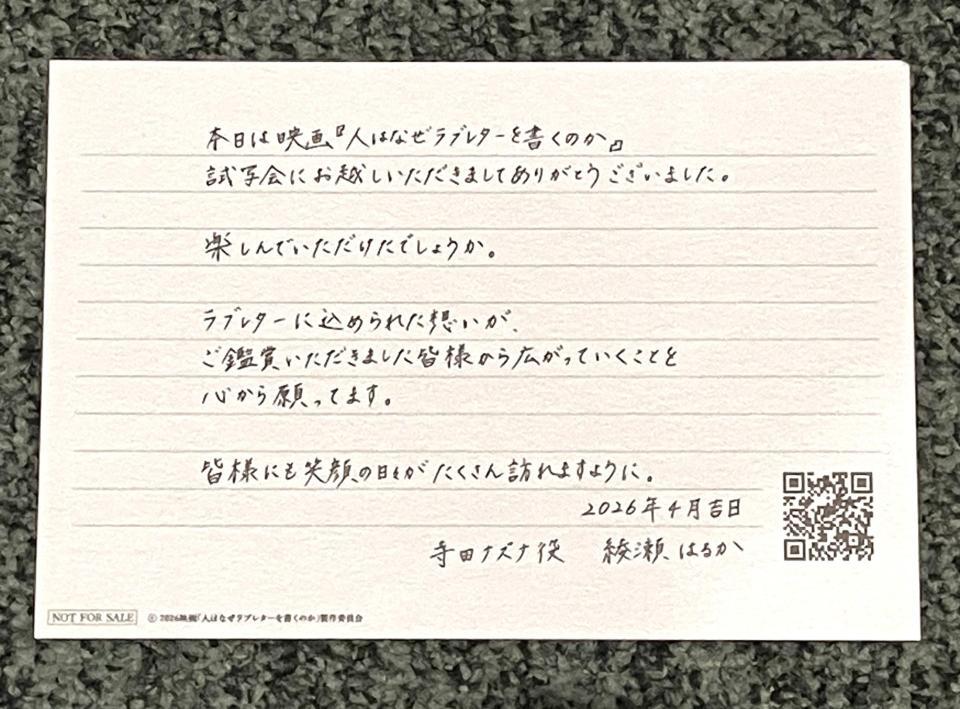 本日は映画『人はなぜラブレターを書くのか』
試写会にお越しいただきましてありがとうございました。
楽しんでいただけたでしょうか。
ラブレターに込められた想いが、
ご鑑賞いただきました皆様から広がっていくことを
心から願ってます。
皆様にも笑顔の日々がたくさん訪れますように。
2026年4月吉日
寺田ナズナ役 綾瀬はるか
NOT FOR SALE
Ⓒ 2026映画「人はなぜラブレターを書くのか」製作委員会